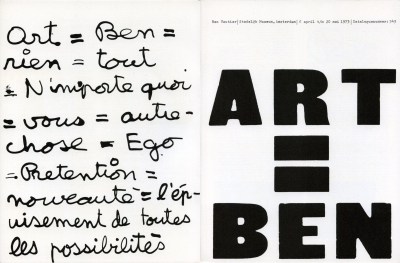 Art = Ben =
rien = tout
= N'importe quoi
= vous = autre-
chose = Ego
= Pretention =
nouveauté = l'ép-
uisement de toutes
les possibilités
Ben Vautier/Stedelijk Museum, Amsterdam/
ART
=
BEN